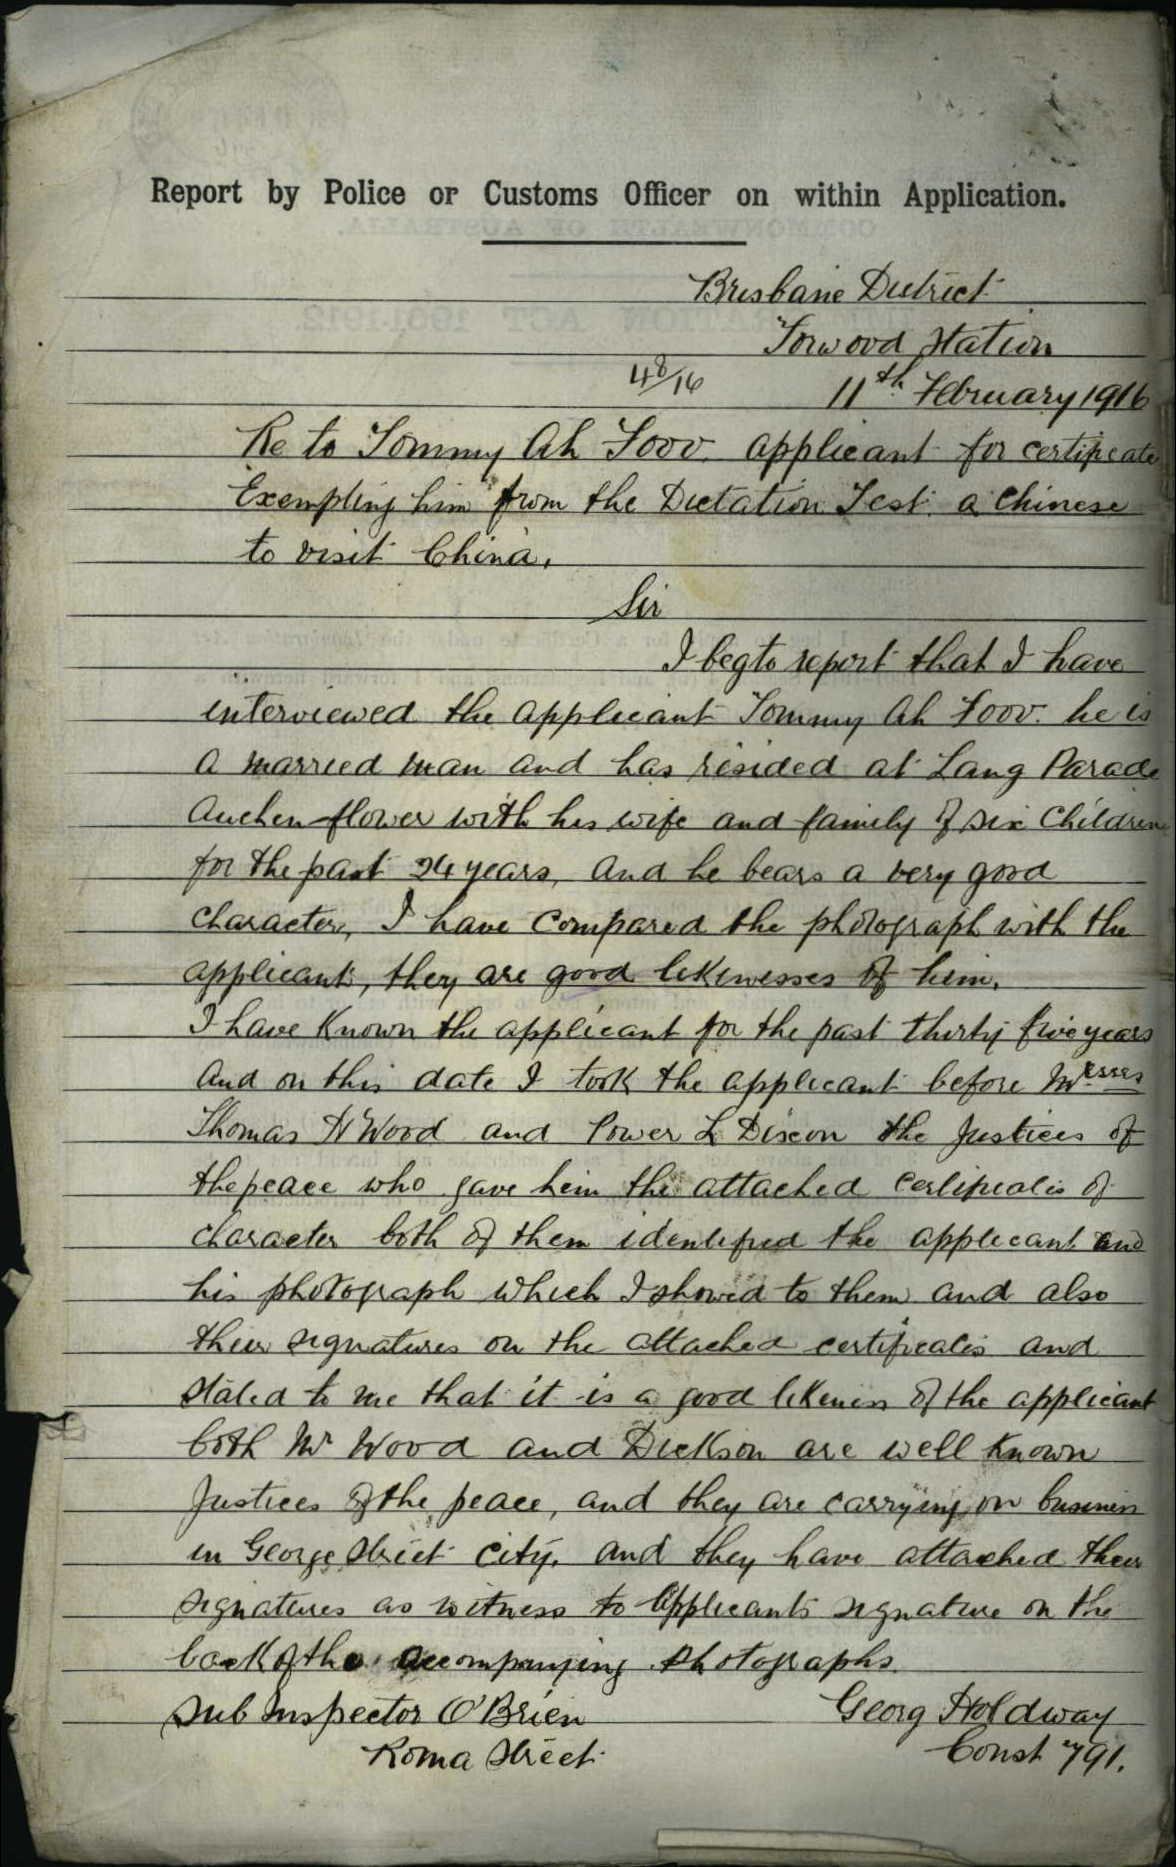 Report by Police or Customs Officer on within Application.
Brisbane District
Torwood Station
48/16 11th February 1916
Re to Tommy Ah Foov. applicant for certificate
Exempting him from the Dictation Test. a Chinese
to visit China.
Sir
I beg to report that I have
interviewed the applicant Tommy Ah Foov. he is
a married man and has resided at Lang Parade
Auchenflower with his wife and family of six Children
for the past 24 years, and he bears a very good
character, I have compared the photograph with the
applicant, they are good likenesses of him.
I have known the applicant for the past thirty five years
and on this date I took the applicant before Messrs
Thomas H Wood and Power L Dixon the Justices of
the peace who gave him the attached certificates of
character both of them identified the applicant and
his photograph which I showed to them and also
their signatures on the attached certificates and
stated to me that it is a good likeness of the applicant
both Mr Wood and Dickson are well known
Justices of the peace, and they are carrying on business
in George Street City. and they have attached their
signatures as witness to applicants signature on the
back of the accompanying photographs.
Sub Inspector O'Brien Georg Holdway
Roma Street Const 791.